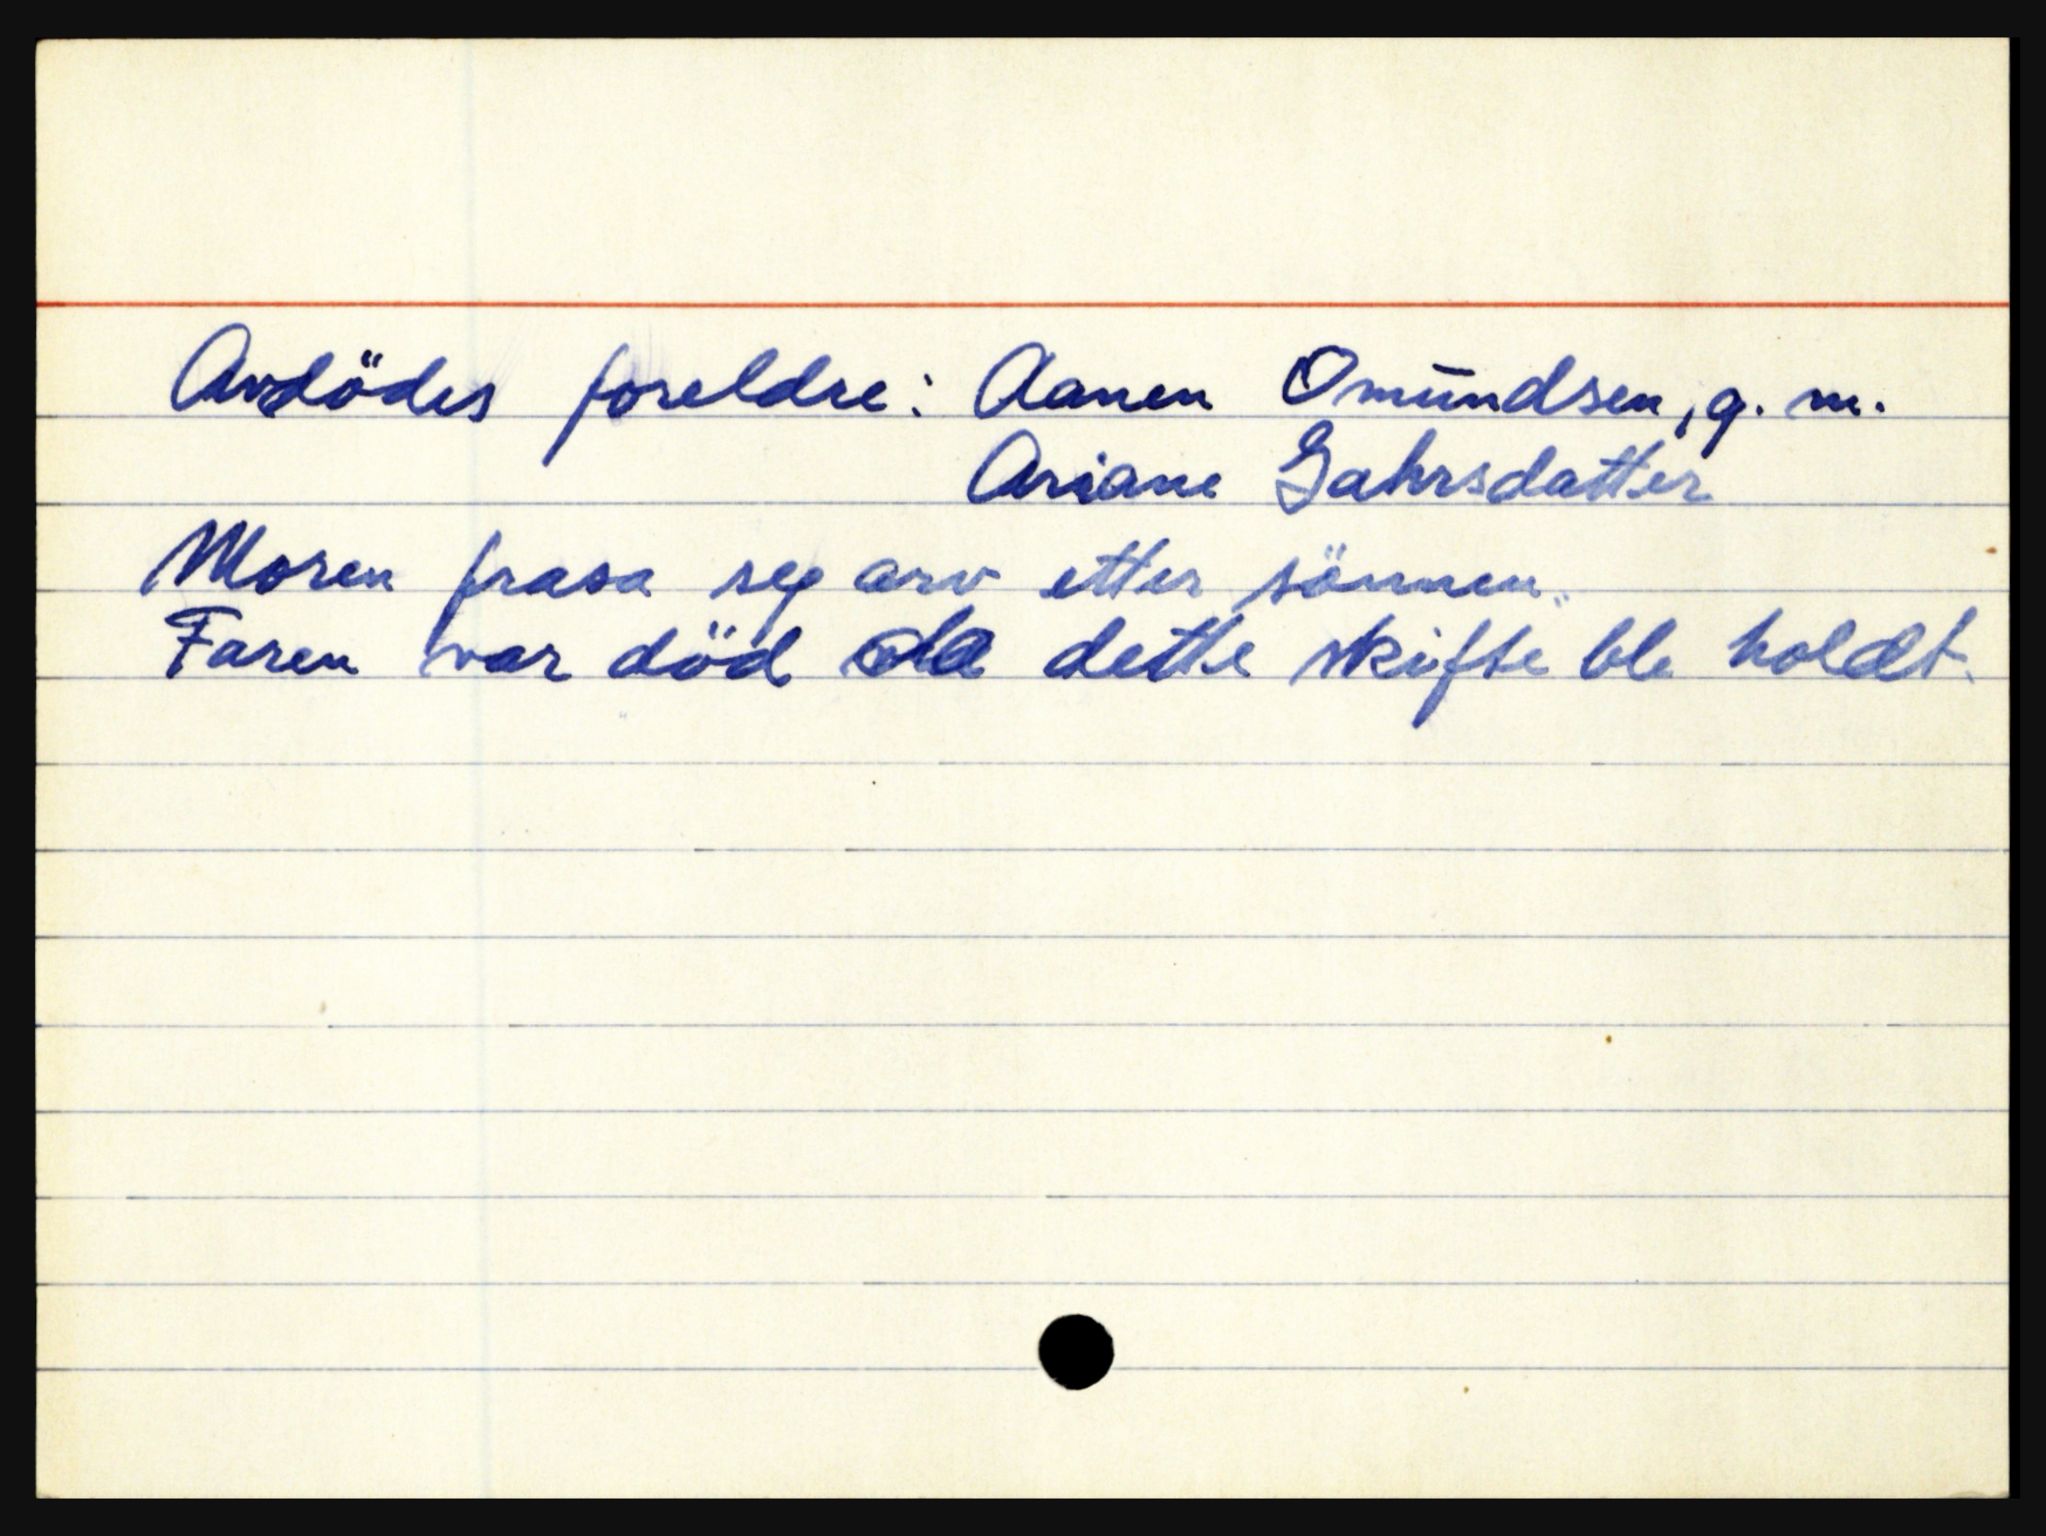 Avdödes foreldre: Aanen Omundsen, g. m.
Ariane Gahrsdatter
Moren frasa seg arv etter sönnen.
Faren var död da dette skifte ble holdt.